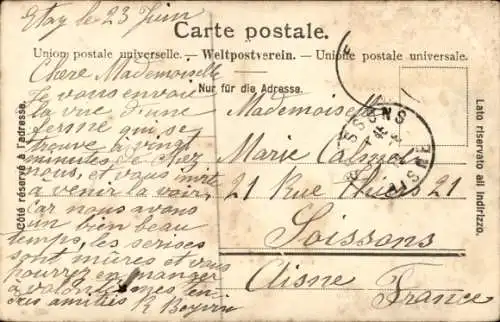 Etoy le 23 Juin
Carte postale.
Union postale universelle. – Weltpostverein. – Unione postale universale.
Nur für die Adresse.
Côté réservé à l'adresse.
Lato riservato all indirizzo.
Chere Mademoiselle
Je vous envoie
la vue d'une
ferme qui se
trouve à vingt
minutes de chez
nous, et vous invite
a venir la voir,
Car nous avons
un bien beau
temps, les serises
sont mûres et vous
pourrez en manger
à volonté mes ten-
dres amitiés R
Mademoiselle
Marie
21 Rue Thiers 21
Soissons
Aisne
France
SOISSONS
AISNE